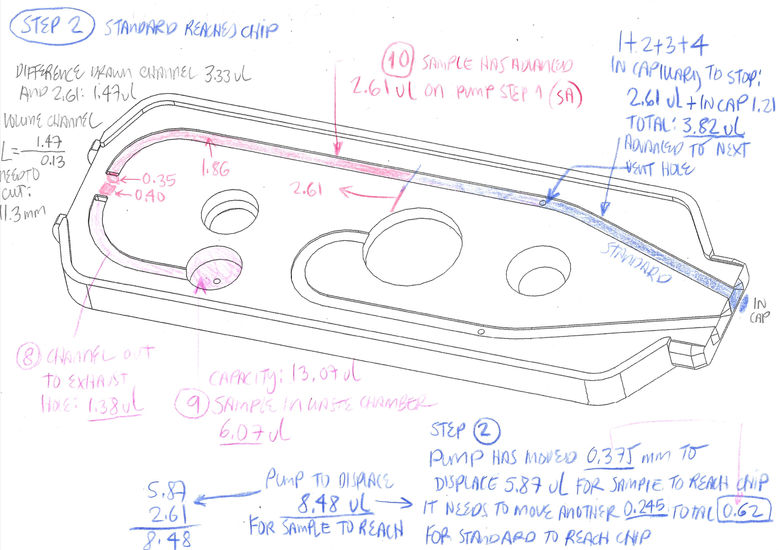 STEP 2 STANDARD REACHED CHIP
DIFFERENCE DRAWN CHANNEL 3.33 ul
AND 2.61: 1.47 ul
VOLUME CHANNEL
L = 1.47
0.13
NEED TO
CUT:
11.3 mm
10 SAMPLE HAS ADVANCED
2.61 ul ON PUMP STEP 1 (5A)
1+2+3+4
IN CAPILLARY TO STOP:
2.61 ul + IN CAP 1.21
TOTAL: 3.82 ul
ADVANCED TO NEXT
VENT HOLE
1.86
0.35
0.40
2.61
STANDARD
IN
CAP
8 CHANNEL OUT
TO EXHAUST
HOLE: 1.38 ul
CAPACITY: 13.07 ul
9 SAMPLE IN WASTE CHAMBER
6.07 ul
5.87
2.61
8.48
PUMP TO DISPLACE
8.48 ul
FOR SAMPLE TO REACH
STEP 2
PUMP HAS MOVED 0.375 mm TO
DISPLACE 5.87 ul FOR SAMPLE TO REACH CHIP
IT NEEDS TO MOVE ANOTHER 0.245 TOTAL 0.62
FOR STANDARD TO REACH CHIP